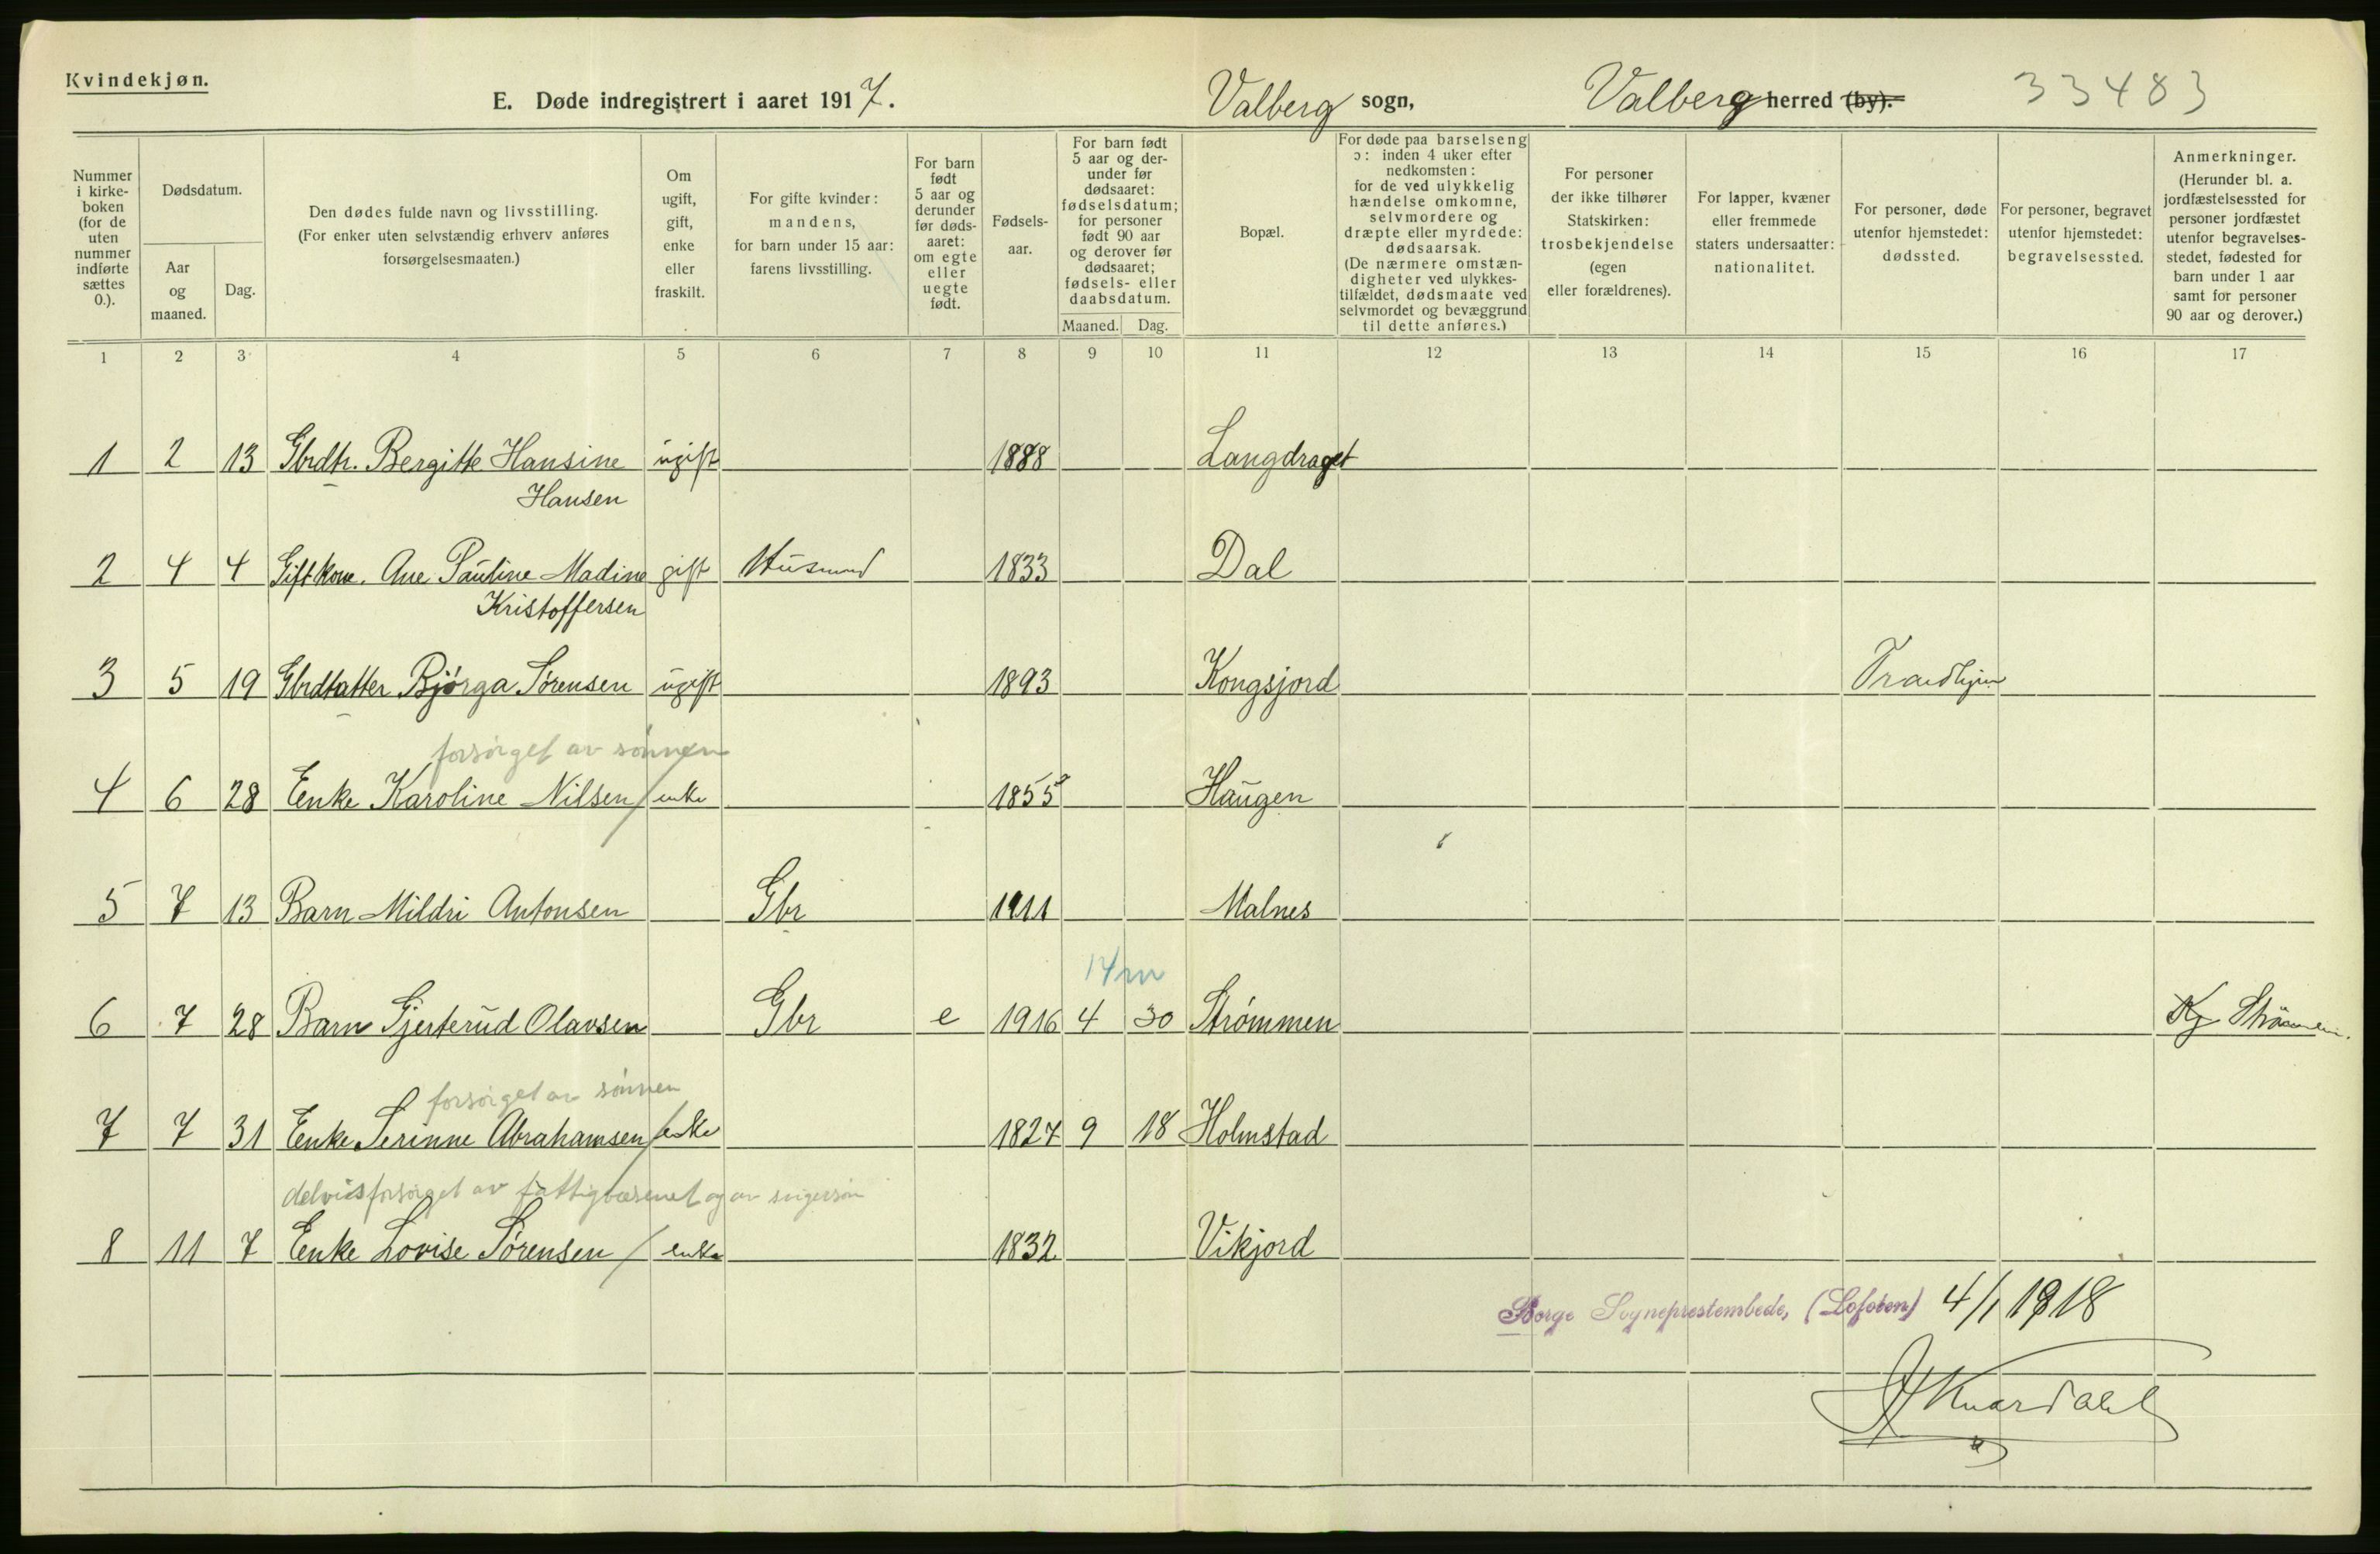 Kvindekjøn.
E. Døde indregistrert i aaret 1917. Valberg sogn, Valberg herred (by). 33483
Nummer i kirke- boken (for de uten nummer indførte sættes 0.).
Dødsdatum.
Aar og maaned.
Dag.
Den dødes fulde navn og livsstilling. (For enker uten selvstændig erhverv anføres forsørgelsesmaaten.)
Om ugift, gift, enke eller fraskilt.
For gifte kvinder: mandens, for barn under 15 aar: farens livsstilling.
For barn født 5 aar og derunder før døds- aaret: om egte eller uegte født.
Fødsels- aar.
For barn født 5 aar og der- under før dødsaaret: fødselsdatum; for personer født 90 aar og derover før dødsaaret; fødsels- eller daabsdatum.
Maaned. Dag.
Bopæl.
For døde paa barselseng ɔ: inden 4 uker efter nedkomsten: for de ved ulykkelig hændelse omkomne, selvmordere og dræpte eller myrdede: dødsaarsak. (De nærmere omstæn- digheter ved ulykkes- tilfældet, dødsmaate ved selvmordet og bevæggrund til dette anføres.)
For personer der ikke tilhører Statskirken: trosbekjendelse (egen eller forældrenes).
For lapper, kvæner eller fremmede staters undersaatter: nationalitet.
For personer, døde utenfor hjemstedet: dødssted.
For personer, begravet utenfor hjemstedet: begravelsessted.
Anmerkninger. (Herunder bl. a. jordfæstelsessted for personer jordfæstet utenfor begravelses- stedet, fødested for barn under 1 aar samt for personer 90 aar og derover.)
1 2 3 4 5 6 7 8 9 10 11 12 13 14 15 16 17
1 2 13 Gbrdtr. Bergitte Hansine ugift 1888 Langdraget
Hansen
2 4 4 Gift kone. Ane Pauline Madine gift Husmand 1833 Dal
Kristoffersen
3 5 19 Gbrdtatter Bjørga Sørensen ugift 1893 Kongsjord Trondhjem
forsørget av sønnen
4 6 28 Enke Karoline Nilsen / enke 1855 Haugen
5 7 13 Barn Mildri Antonsen Gbr 1911 Malnes
14 m
6 7 28 Barn Gjerterud Olavsen Gbr e 1916 4 30 Strømmen Kg
forsørget av sønnen
7 7 31 Enke Serinne Abrahamsen / enke 1827 9 18 Holmstad
delvis forsørget av fattigvæsenet og av svigersøn
8 11 7 Enke Lovise Sørensen / enke 1832 Vikjord
Borge Sogneprestembede, (Lofoten) 4/1 1918